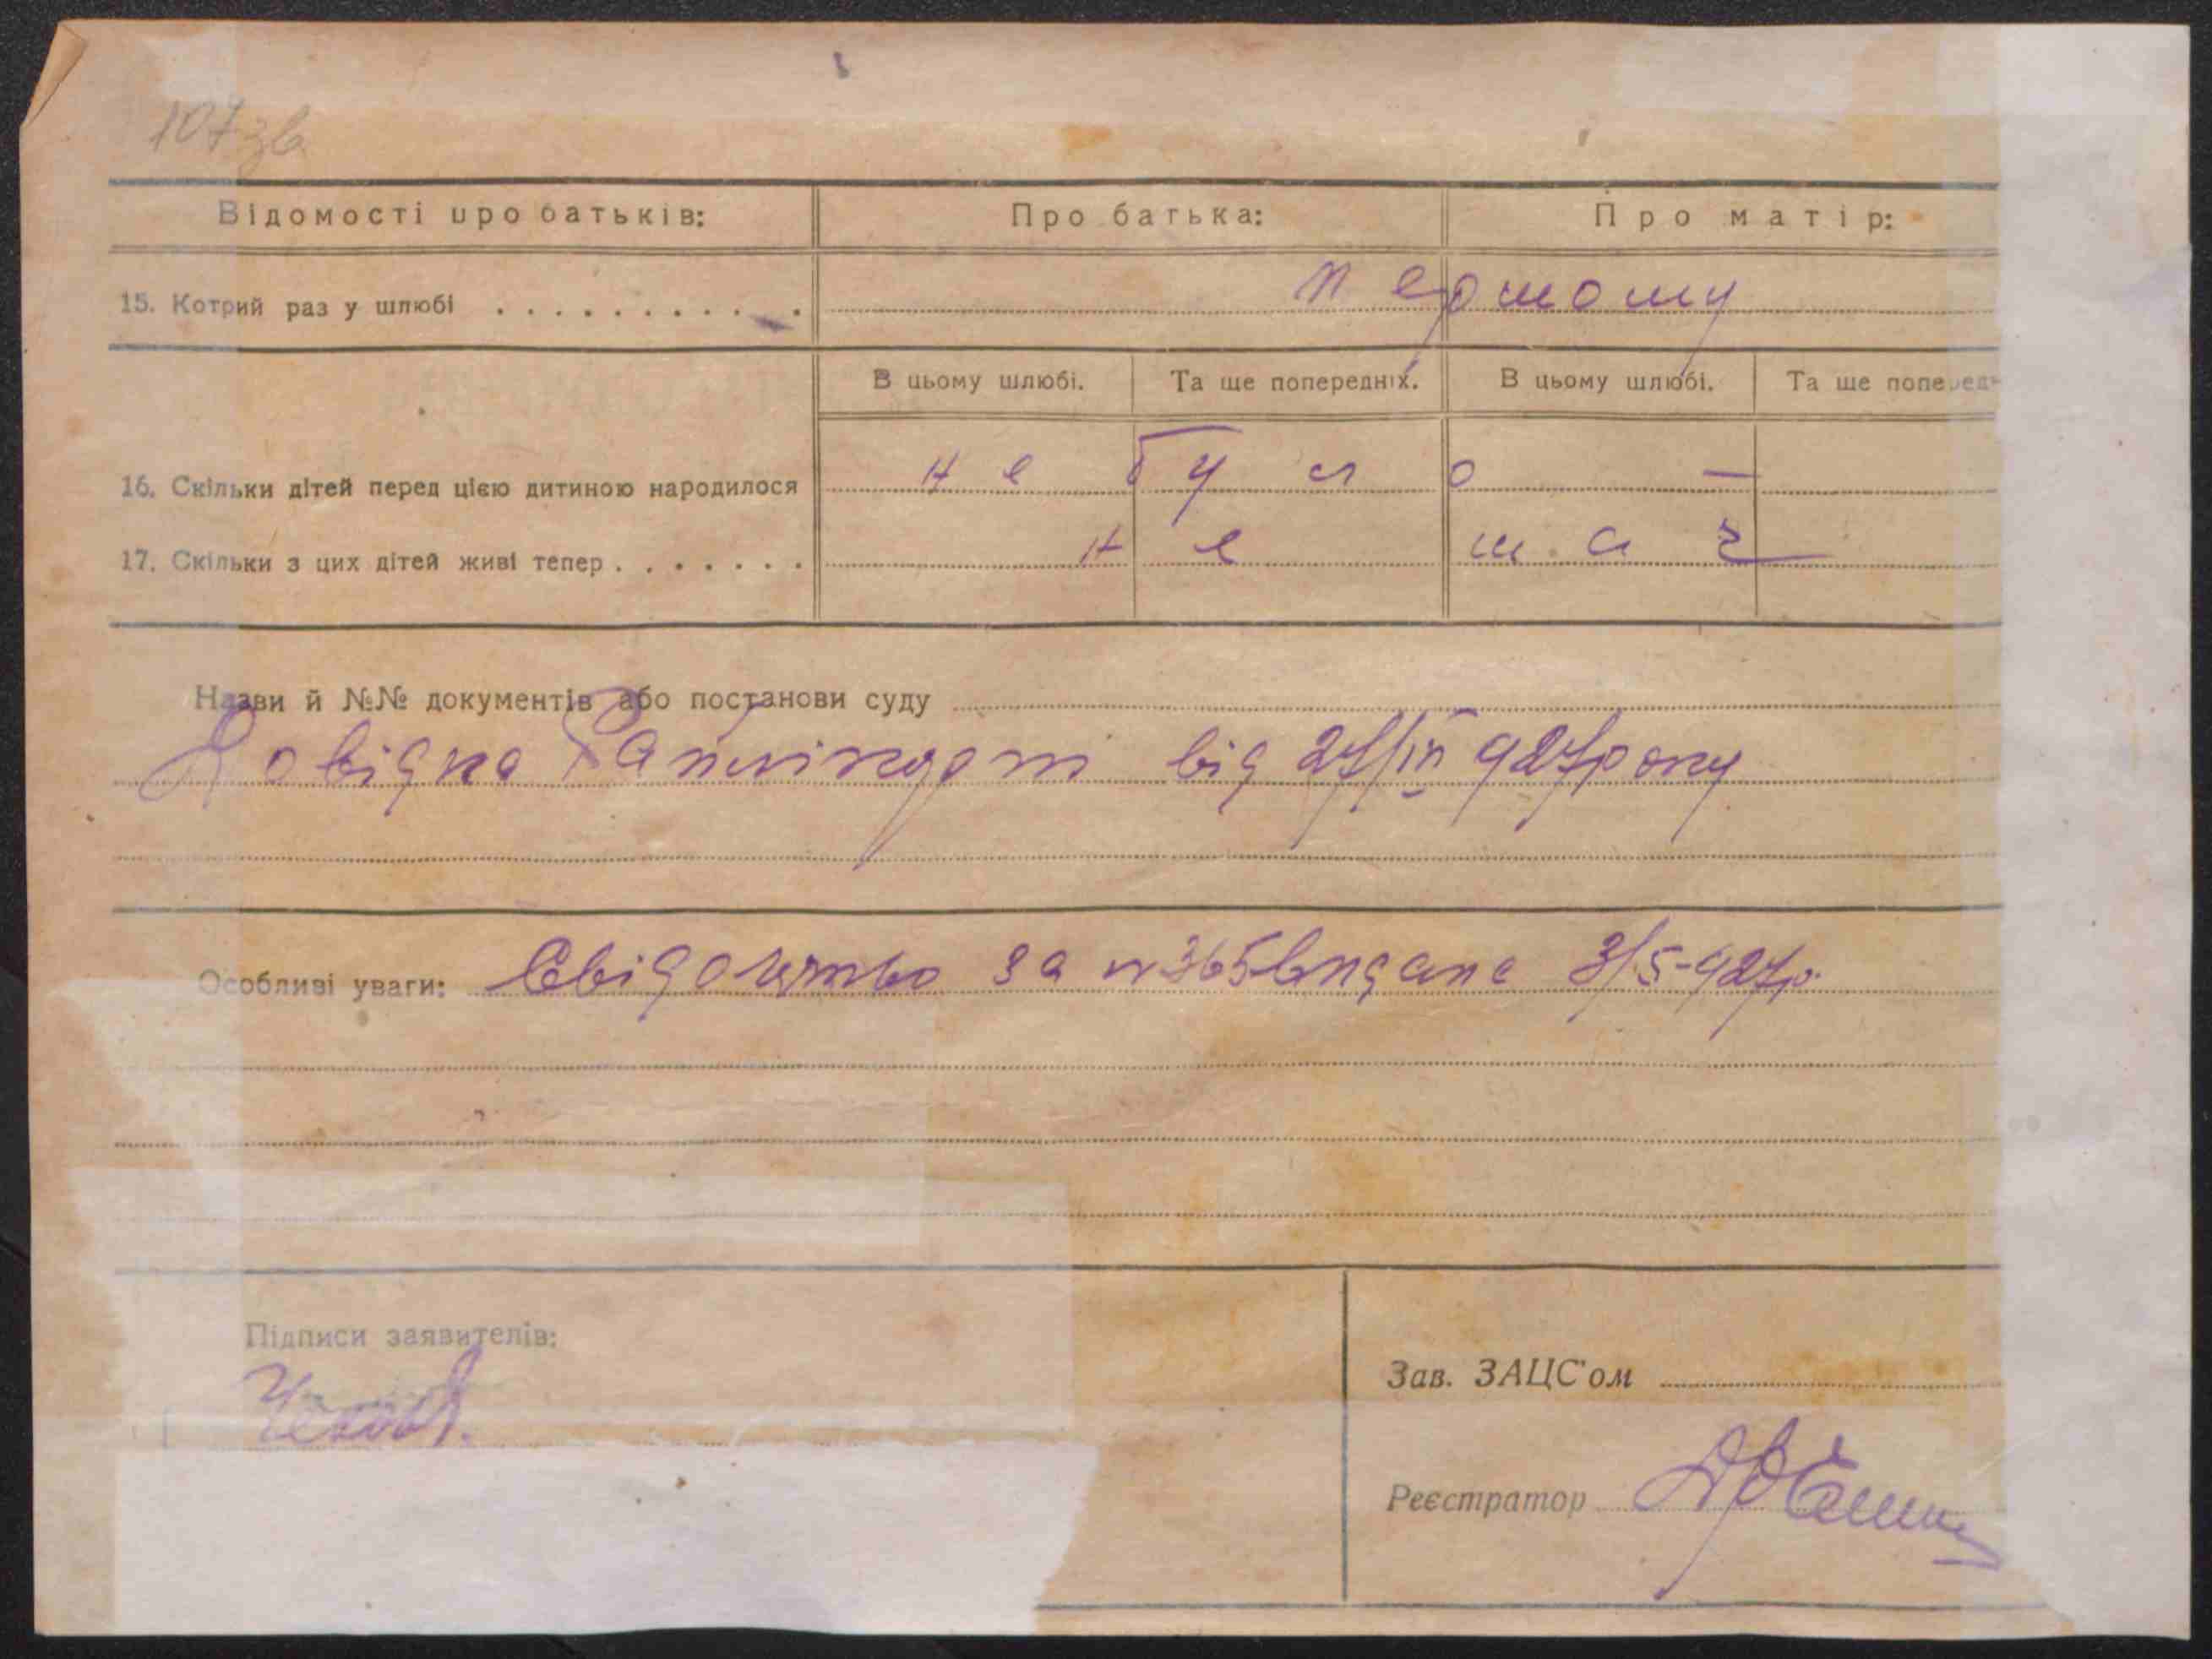 107 зв
Відомості про батьків: Про батька: Про матір:
15. Котрий раз у шлюбі . . . . . . . . . . . першому
В цьому шлюбі. Та ще попередніх. В цьому шлюбі. Та ще поперед
16. Скільки дітей перед цією дитиною народилося не було —
17. Скільки з цих дітей живі тепер . . . . . . . не має
Назви й №№ документів або постанови суду
Довідка від 27/IV 927 року
Особливі уваги: Свідоцтво за № 365 видане 3/5-927р.
Підписи заявителів:
Зав. ЗАЦС'ом
Реєстратор